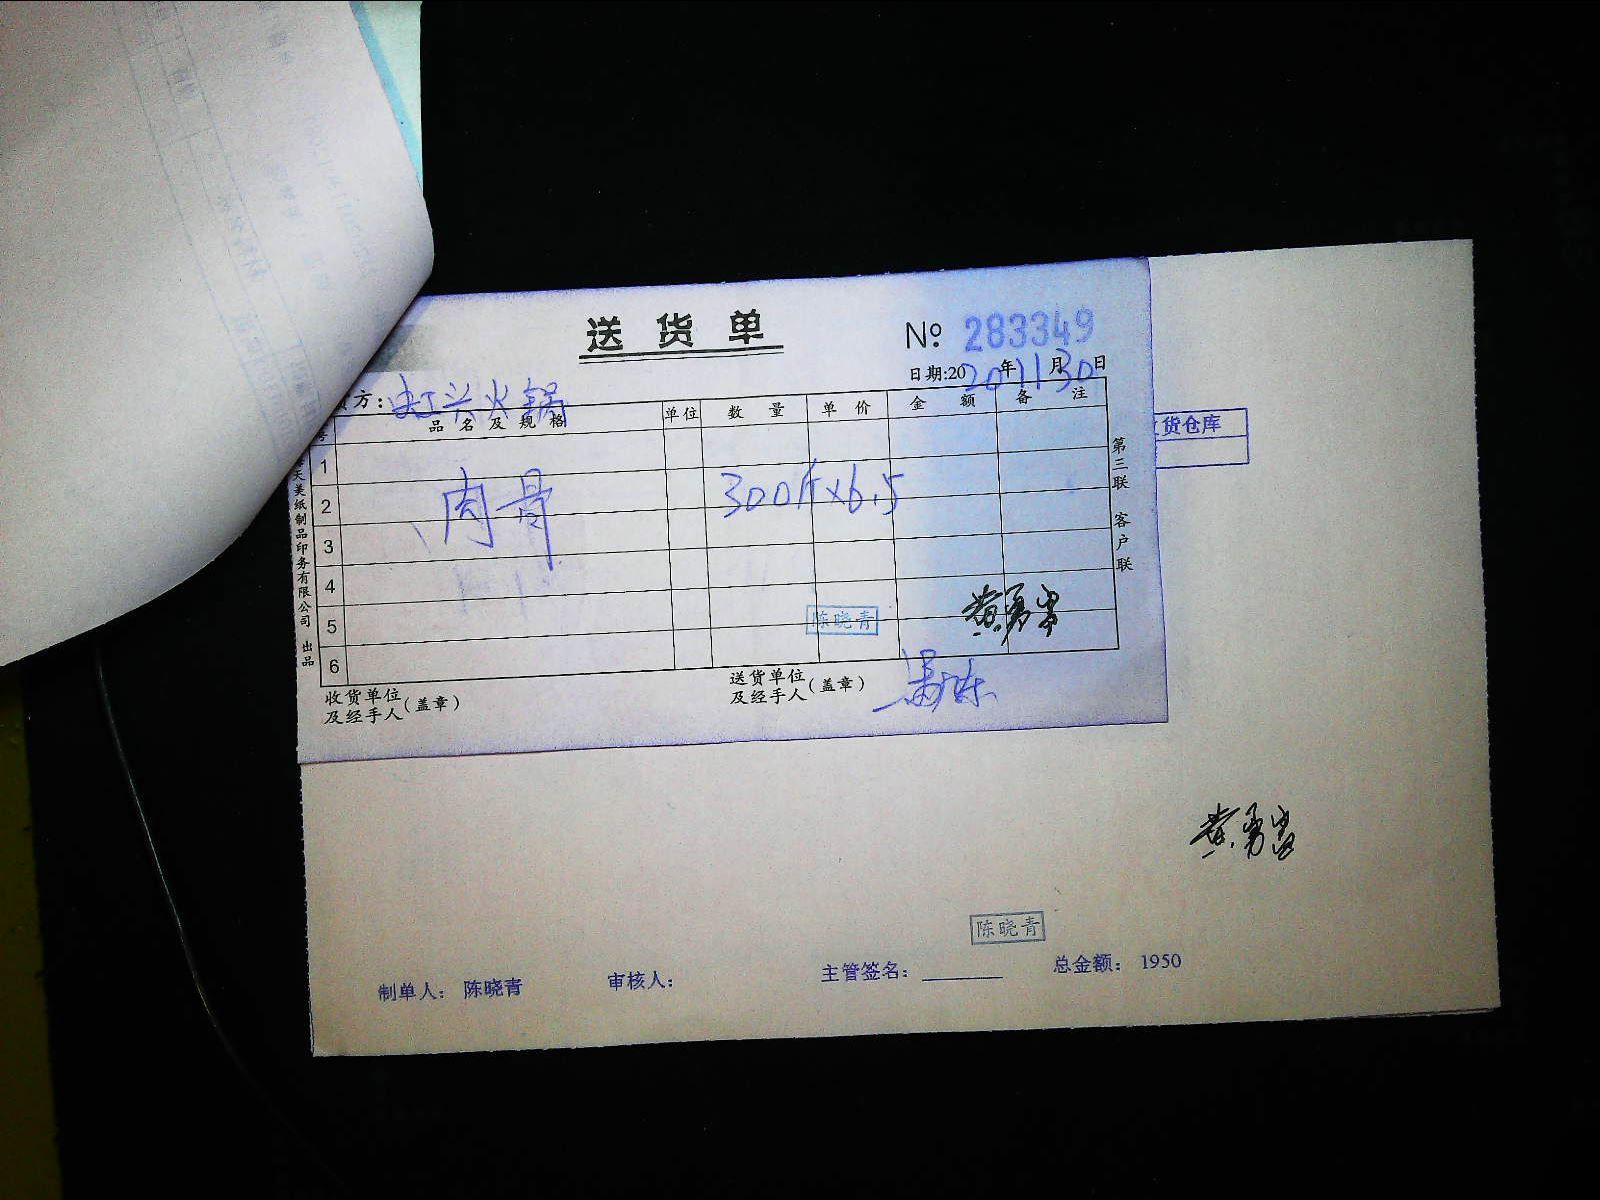 送货单
№ 283349
日期:2020年11月30日
方: 虹兴火锅
品名及规格 单位 数量 单价 金额 备注
货仓库
1
2 肉骨 300斤×6.5
3
4
5 陈晓青 黄勇
6
收货单位
及经手人(盖章)
送货单位
及经手人(盖章)
天美纸制品印务有限公司 出品
第三联 客户联
黄勇
陈晓青
制单人: 陈晓青 审核人: 主管签名: 总金额: 1950